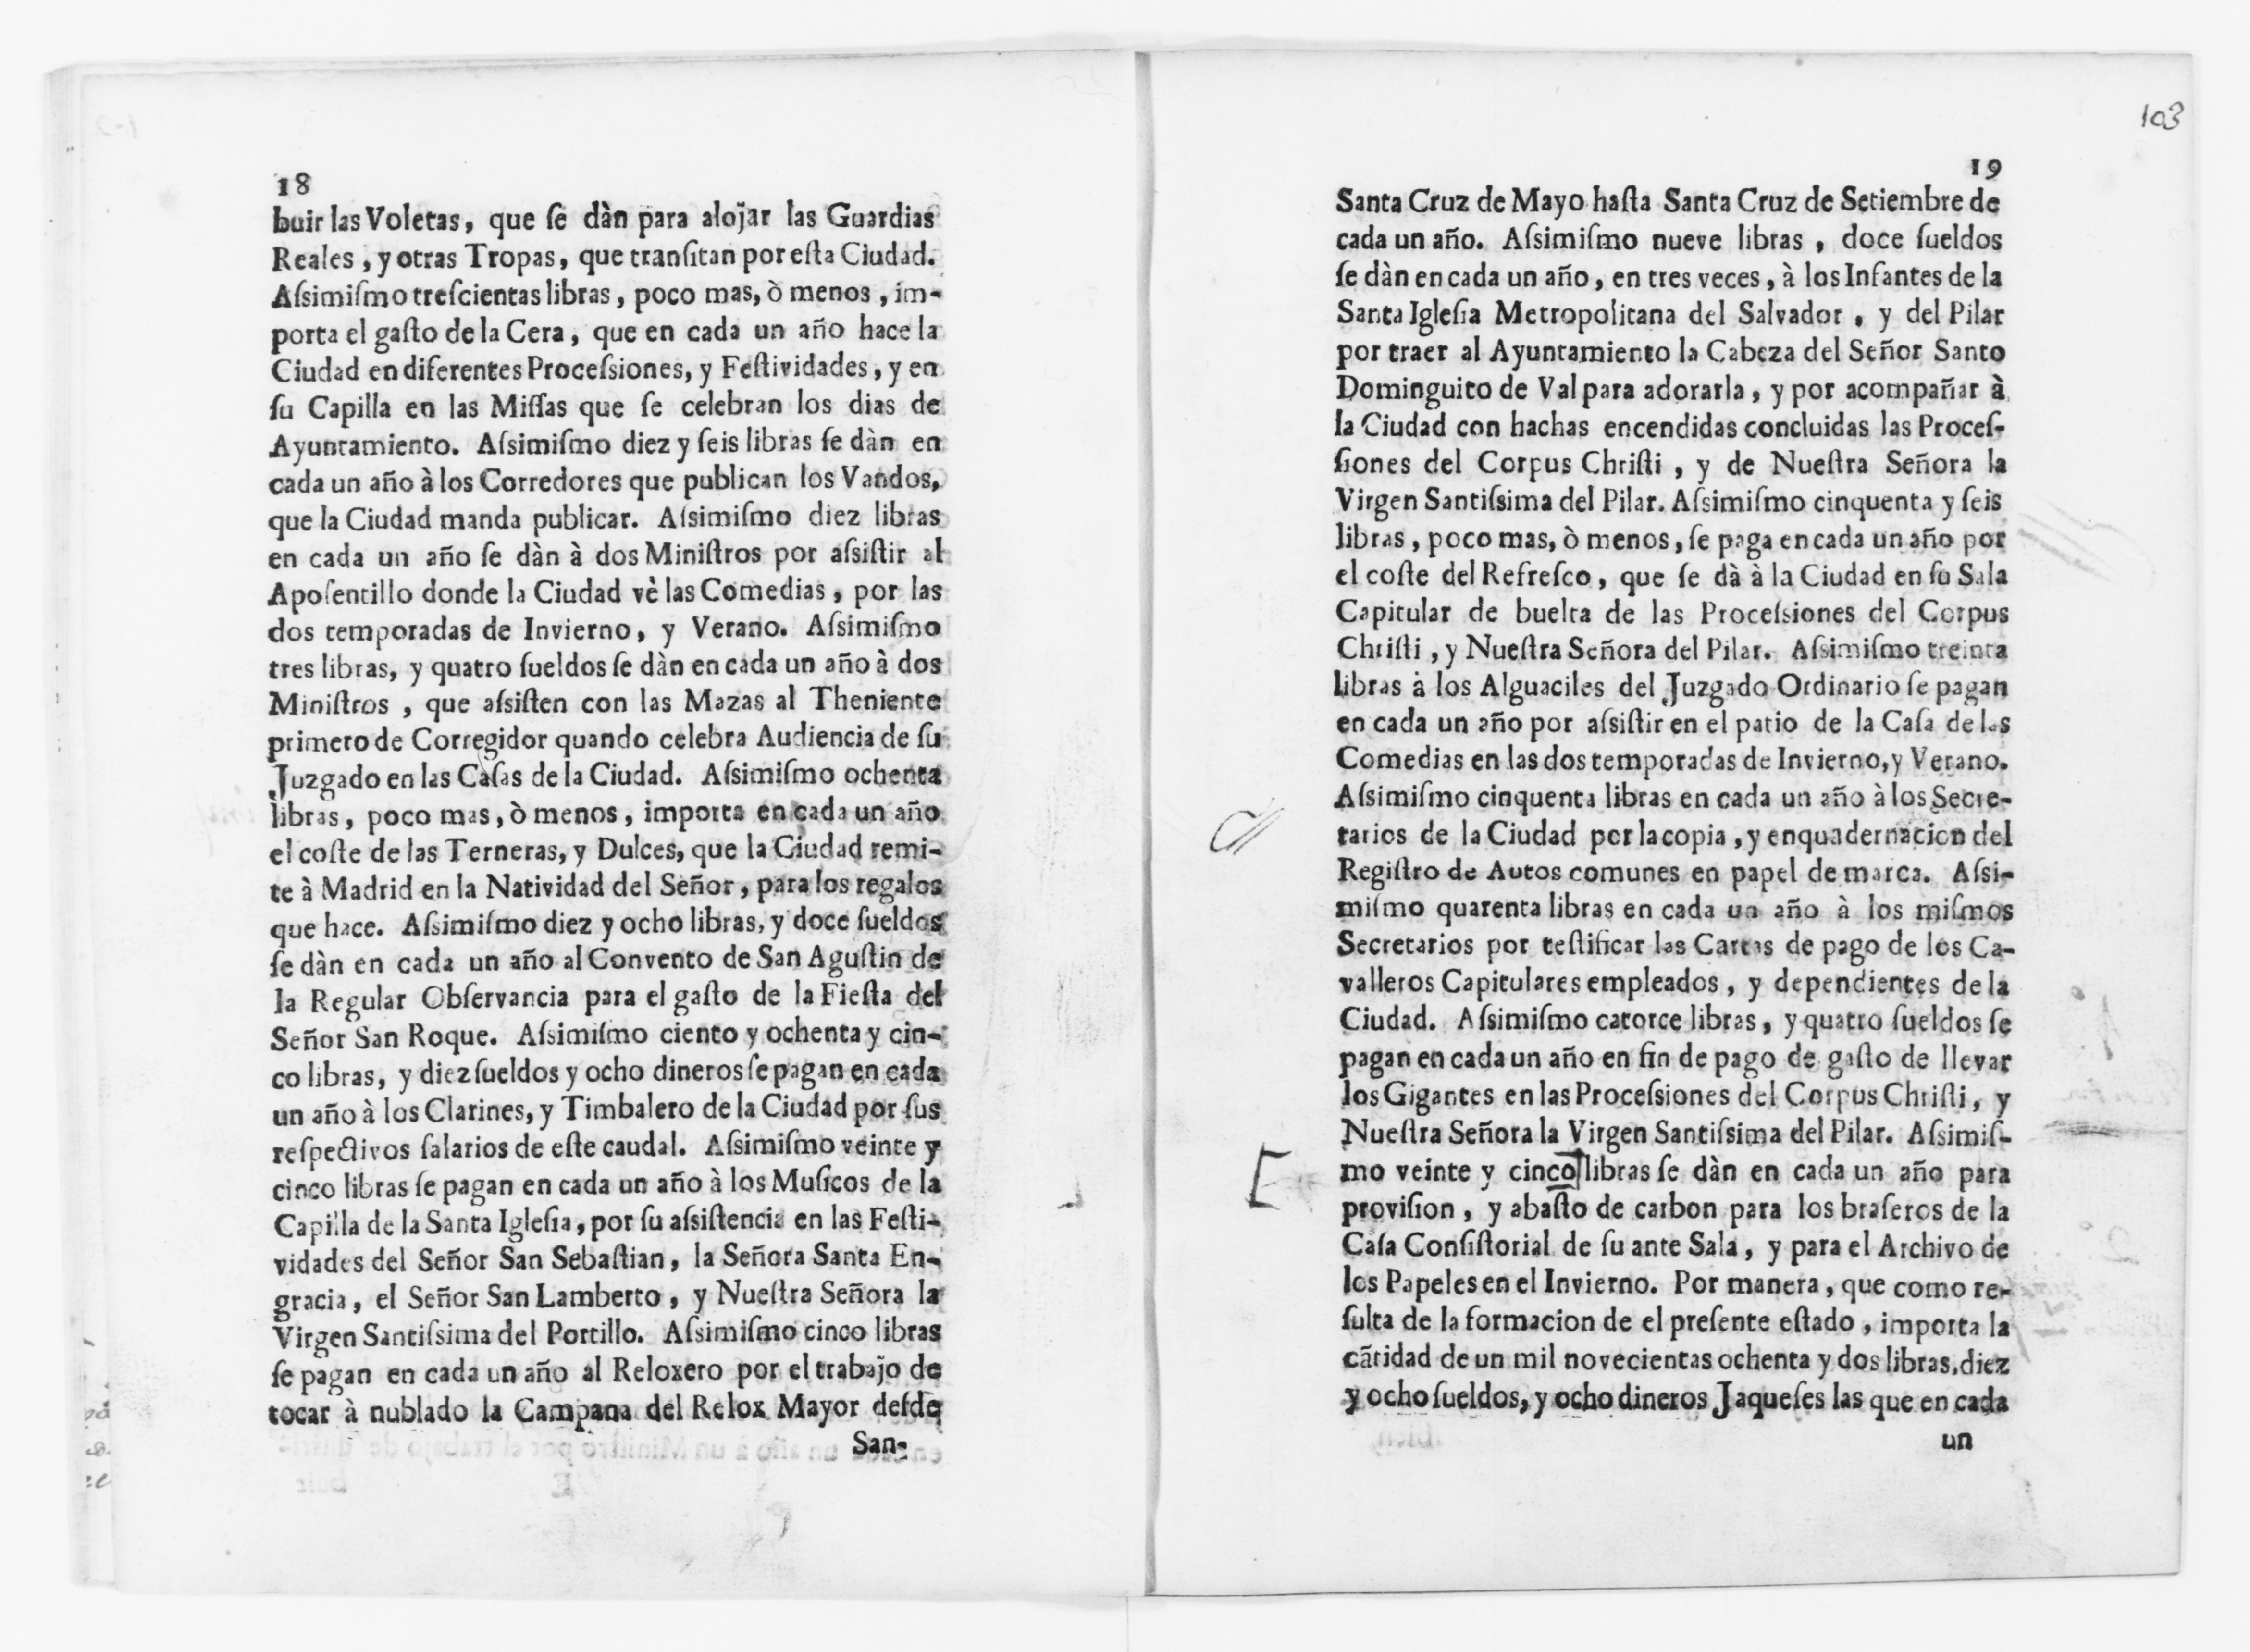 18
buir las Voletas, que ſe dàn para alojar las Guardias
Reales, y otras Tropas, que tranſitan por eſta Ciudad.
Aſsimiſmo treſcientas libras, poco mas, ò menos, im-
porta el gaſto de la Cera, que en cada un año hace la
Ciudad en diferentes Proceſsiones, y Feſtividades, y en
ſu Capilla en las Miſſas que ſe celebran los dias de
Ayuntamiento. Aſsimiſmo diez y ſeis libras ſe dàn en
cada un año à los Corredores que publican los Vandos,
que la Ciudad manda publicar. Aſsimiſmo diez libras
en cada un año ſe dàn à dos Miniſtros por aſsiſtir al
Apoſentillo donde la Ciudad vè las Comedias, por las
dos temporadas de Invierno, y Verano. Aſsimiſmo
tres libras, y quatro ſueldos ſe dàn en cada un año à dos
Miniſtros, que aſsiſten con las Mazas al Theniente
primero de Corregidor quando celebra Audiencia de ſu
Juzgado en las Caſas de la Ciudad. Aſsimiſmo ochenta
libras, poco mas, ò menos, importa en cada un año
el coſte de las Terneras, y Dulces, que la Ciudad remi-
te à Madrid en la Natividad del Señor, para los regalos
que hace. Aſsimiſmo diez y ocho libras, y doce ſueldos
ſe dàn en cada un año al Convento de San Aguſtin de
la Regular Obſervancia para el gaſto de la Fieſta del
Señor San Roque. Aſsimiſmo ciento y ochenta y cin-
co libras, y diez ſueldos y ocho dineros ſe pagan en cada
un año à los Clarines, y Timbalero de la Ciudad por ſus
reſpectivos ſalarios de eſte caudal. Aſsimiſmo veinte y
cinco libras ſe pagan en cada un año à los Muſicos de la
Capilla de la Santa Igleſia, por ſu aſsiſtencia en las Feſti-
vidades del Señor San Sebaſtian, la Señora Santa En-
gracia, el Señor San Lamberto, y Nueſtra Señora la
Virgen Santiſsima del Portillo. Aſsimiſmo cinco libras
ſe pagan en cada un año al Reloxero por el trabajo de
tocar à nublado la Campana del Relox Mayor deſde
San-
103
19
Santa Cruz de Mayo haſta Santa Cruz de Setiembre de
cada un año. Aſsimiſmo nueve libras, doce ſueldos
ſe dàn en cada un año, en tres veces, à los Infantes de la
Santa Igleſia Metropolitana del Salvador, y del Pilar
por traer al Ayuntamiento la Cabeza del Señor Santo
Dominguito de Val para adorarla, y por acompañar à
la Ciudad con hachas encendidas concluidas las Proceſ-
ſiones del Corpus Chriſti, y de Nueſtra Señora la
Virgen Santiſsima del Pilar. Aſsimiſmo cinquenta y ſeis
libras, poco mas, ò menos, ſe paga en cada un año por
el coſte del Refreſco, que ſe dà à la Ciudad en ſu Sala
Capitular de buelta de las Proceſsiones del Corpus
Chriſti, y Nueſtra Señora del Pilar. Aſsimiſmo treinta
libras à los Alguaciles del Juzgado Ordinario ſe pagan
en cada un año por aſsiſtir en el patio de la Caſa de las
Comedias en las dos temporadas de Invierno, y Verano.
Aſsimiſmo cinquenta libras en cada un año à los Secre-
tarios de la Ciudad por la copia, y enquadernacion del
Regiſtro de Autos comunes en papel de marca. Aſsi-
miſmo quarenta libras en cada un año à los miſmos
Secretarios por teſtificar las Cartas de pago de los Ca-
valleros Capitulares empleados, y dependientes de la
Ciudad. Aſsimiſmo catorce libras, y quatro ſueldos ſe
pagan en cada un año en fin de pago de gaſto de llevar
los Gigantes en las Proceſsiones del Corpus Chriſti, y
Nueſtra Señora la Virgen Santiſsima del Pilar. Aſsimiſ-
mo veinte y cinco libras ſe dàn en cada un año para
proviſion, y abaſto de carbon para los braſeros de la
Caſa Conſiſtorial de ſu ante Sala, y para el Archivo de
los Papeles en el Invierno. Por manera, que como re-
ſulta de la formacion de el preſente eſtado, importa la
cãtidad de un mil novecientas ochenta y dos libras, diez
y ocho ſueldos, y ocho dineros Jaqueſes las que en cada
un